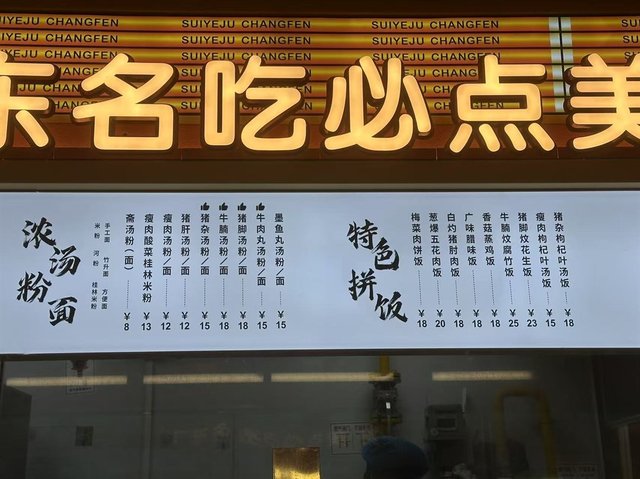 SUIYEJU CHANGFEN SUIYEJU CHANGFEN SUIYEJU CHANGFEN
SUIYEJU CHANGFEN SUIYEJU CHANGFEN SUIYEJU CHANGFEN
SUIYEJU CHANGFEN SUIYEJU CHANGFEN SUIYEJU CHANGFEN
东名吃必点美
浓汤粉面
手工面 竹升面 方便面
米粉 河粉 桂林米粉
斋汤粉(面) ¥8
瘦肉酸菜桂林米粉 ¥13
瘦肉汤粉/面 ¥12
猪肝汤粉/面 ¥12
猪杂汤粉/面 ¥15
牛腩汤粉/面 ¥18
猪脚汤粉/面 ¥18
牛肉丸汤粉/面 ¥15
墨鱼丸汤粉/面 ¥15
特色拼饭
梅菜肉饼饭 ¥18
葱爆五花肉饭 ¥20
白灼猪肘肉饭 ¥18
广味腊味饭 ¥18
香菇蒸鸡饭 ¥18
牛腩炆腐竹饭 ¥25
猪脚炆花生饭 ¥23
瘦肉枸杞叶汤饭 ¥15
猪杂枸杞叶汤饭 ¥18